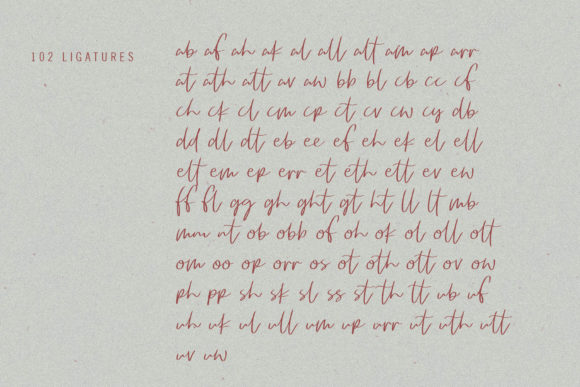 102 LIGATURES
ab af ah ak al all alt am ap arr
at ath att av aw bb bl cb cc cf
ch ck cl cm cp ct cv cw cy db
dd dl dt eb ee ef eh ek el ell
elt em ep err et eth ett ev ew
ff fl gg gh ght gt ht ll lt mb
mm nt ob obb of oh ok ol oll olt
om oo op orr os ot oth ott ov ow
ph pp sh sk sl ss st th tt ub uf
uh uk ul ull um up urr ut uth utt
uv uw